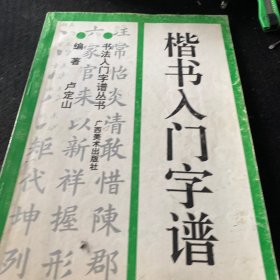 楷书入门字谱
书法入门字谱丛书
广西美术出版社
编著
卢定山
汪常怡炎清敢惜陳郡
六家官来以新祥握形
矩代坤列